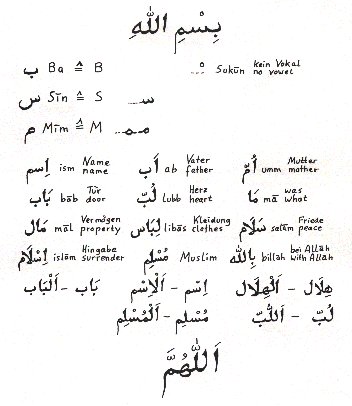 بِسْمِ اللّٰهِ
ب Ba ≙ B ْ Sukūn kein Vokal no vowel
س Sīn ≙ S ســ
م Mīm ≙ M ممـ
اِسم ism Name name اَب ab Vater father اُمّ umm Mutter mother
بَاب bāb Tür door لُبّ lubb Herz heart مَا mā was what
مَال māl Vermögen property لِبَاس libās Kleidung clothes سَلَام salām Friede peace
اِسْلَام islām Hingabe surrender مُسْلِم Muslim بِاللّٰه billāh bei Allāh with Allāh
هِلَال - اَلْهِلَال اِسْم - اَلْاِسْم بَاب - اَلْبَاب
لُبّ - اَللُّبّ مُسْلِم - اَلْمُسْلِم
اَللّٰهُمَّ